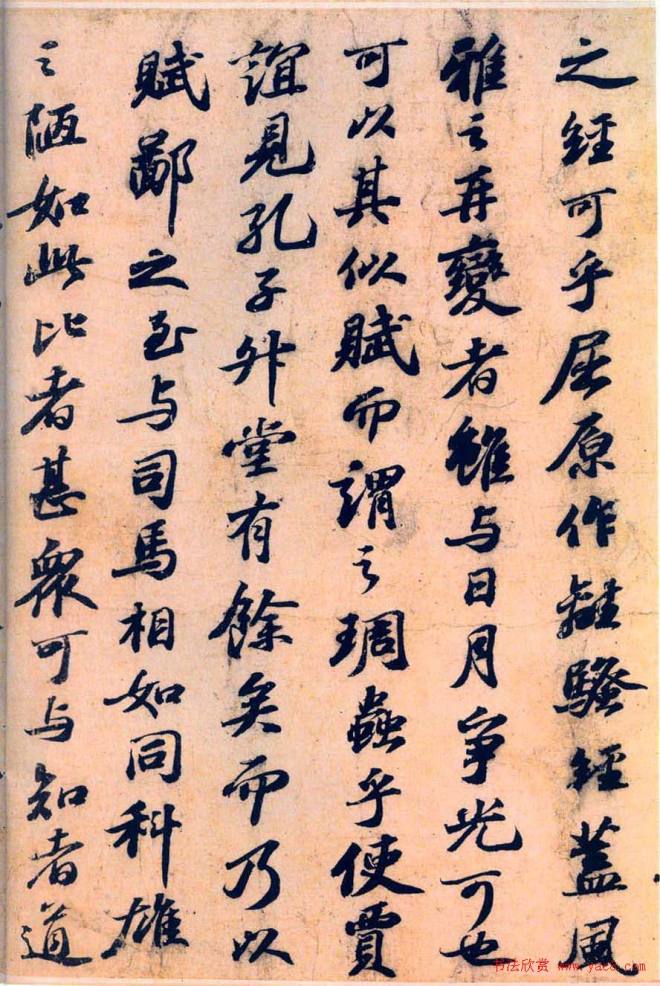 之經可乎屈原作離騷經蓋風
雅之再變者雖与日月爭光可也
可以其似賦而謂之琱蟲乎使賈
誼見孔子升堂有餘矣而乃以
賦鄙之至与司馬相如同科雄
之陋如此比者甚眾可与知者道
书法欣赏 www.yac8.com